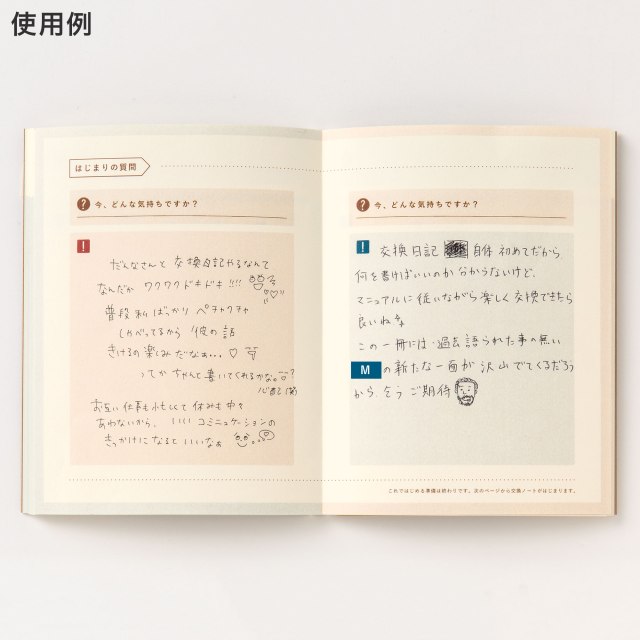 使用例
はじまりの質問
? 今、どんな気持ちですか?
!
だんなさんと 交換日記やるなんて
なんだか ワクワクドキドキ!!!
普段 私ばっかり ペチャクチャ
しゃべってるから 彼の話
きけるの楽しみだなぁ...♡
ってか ちゃんと書いてくれるかな。?
心配(笑)
お互い仕事も忙しくて 休みも中々
あわないから、いい コミュニケーションの
きっかけに なると いいなぁ
? 今、どんな気持ちですか?
!
交換日記 自体 初めてだから
何を書けばいいのか 分からないけど、
マニュアルに従いながら楽しく交換できたら
良いねぇ
この一冊には 過去 語られた事の無い
M の新たな一面が 沢山でてくるだろう
から、そう ご期待
これではじめる準備は終わりです。次のページから交換ノートがはじまります。